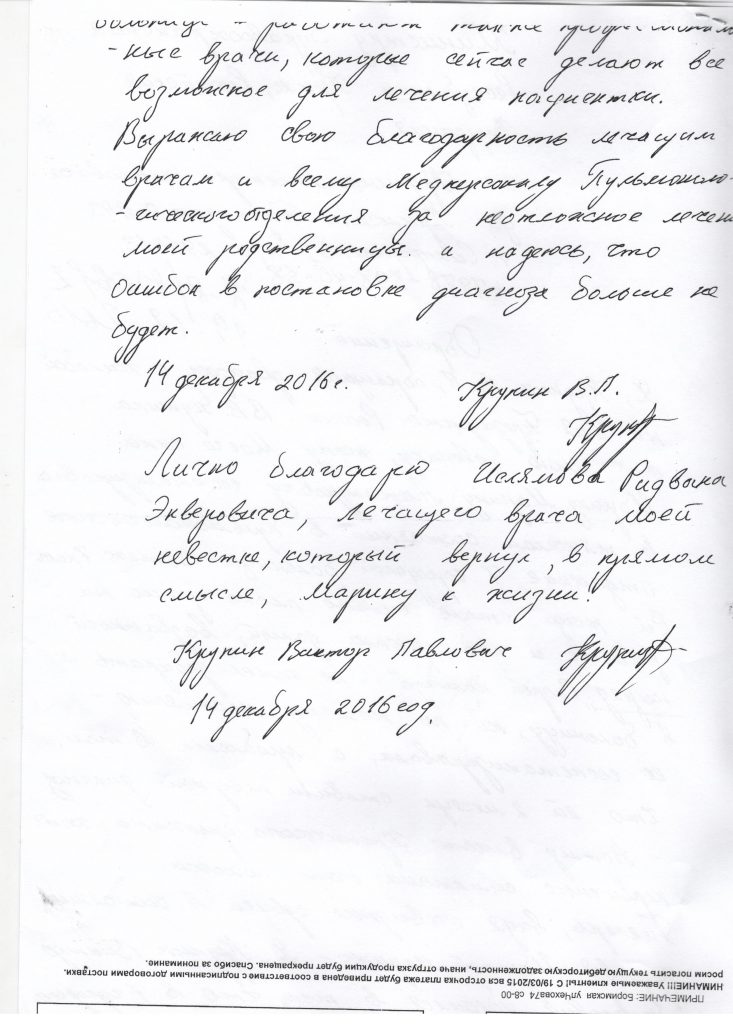 работают такие
-ные врачи, которые сейчас делают все
возможное для лечения пациентки.
Выражаю свою благодарность лечащим
врачам и всему Медперсоналу Пульмоноло-
-гического отделения за неотложное лечен
моей родственницы. и надеюсь, что
ошибок в постановке диагноза больше не
будет.
14 декабря 2016г. Крупин В.П.
Круп
Лично благодарю Ислямова Ридвана
Энверовича, лечащего врача моей
невестке, который вернул, в прямом
смысле, Марину к жизни!
Крупин Виктор Павлович Крупин
14 декабря 2016 год.
росим погасить текущую дебиторскую задолженность, иначе отгрузка продукции будет прекращена. Спасибо за понимание.
НИМАНИЕ!!! Уважаемые клиенты! С 19/03/2015 вся отсрочка платежа будет приведена в соответствие с подписанными договорами поставки.
ПРИМЕЧАНИЕ: Боримская улЧехова74 с8-00